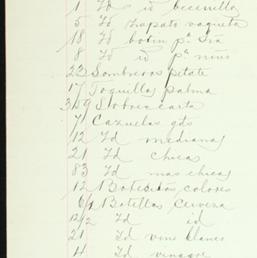 1 Id id becerrillo
5 Id zapato vaqueta
18 Id botin pª Sra
8 Id id pª niño
23 Sombreros petate
17 Toquilla palma
359 Sobrecarta
71 Cazuelas gds
12 Id mediana
21 Id chica
83 Id mas chica
12 Botes colores
6/2 Botellas cerveza
12/2 Id id
21 Id vino blanco
4 Id vinagre